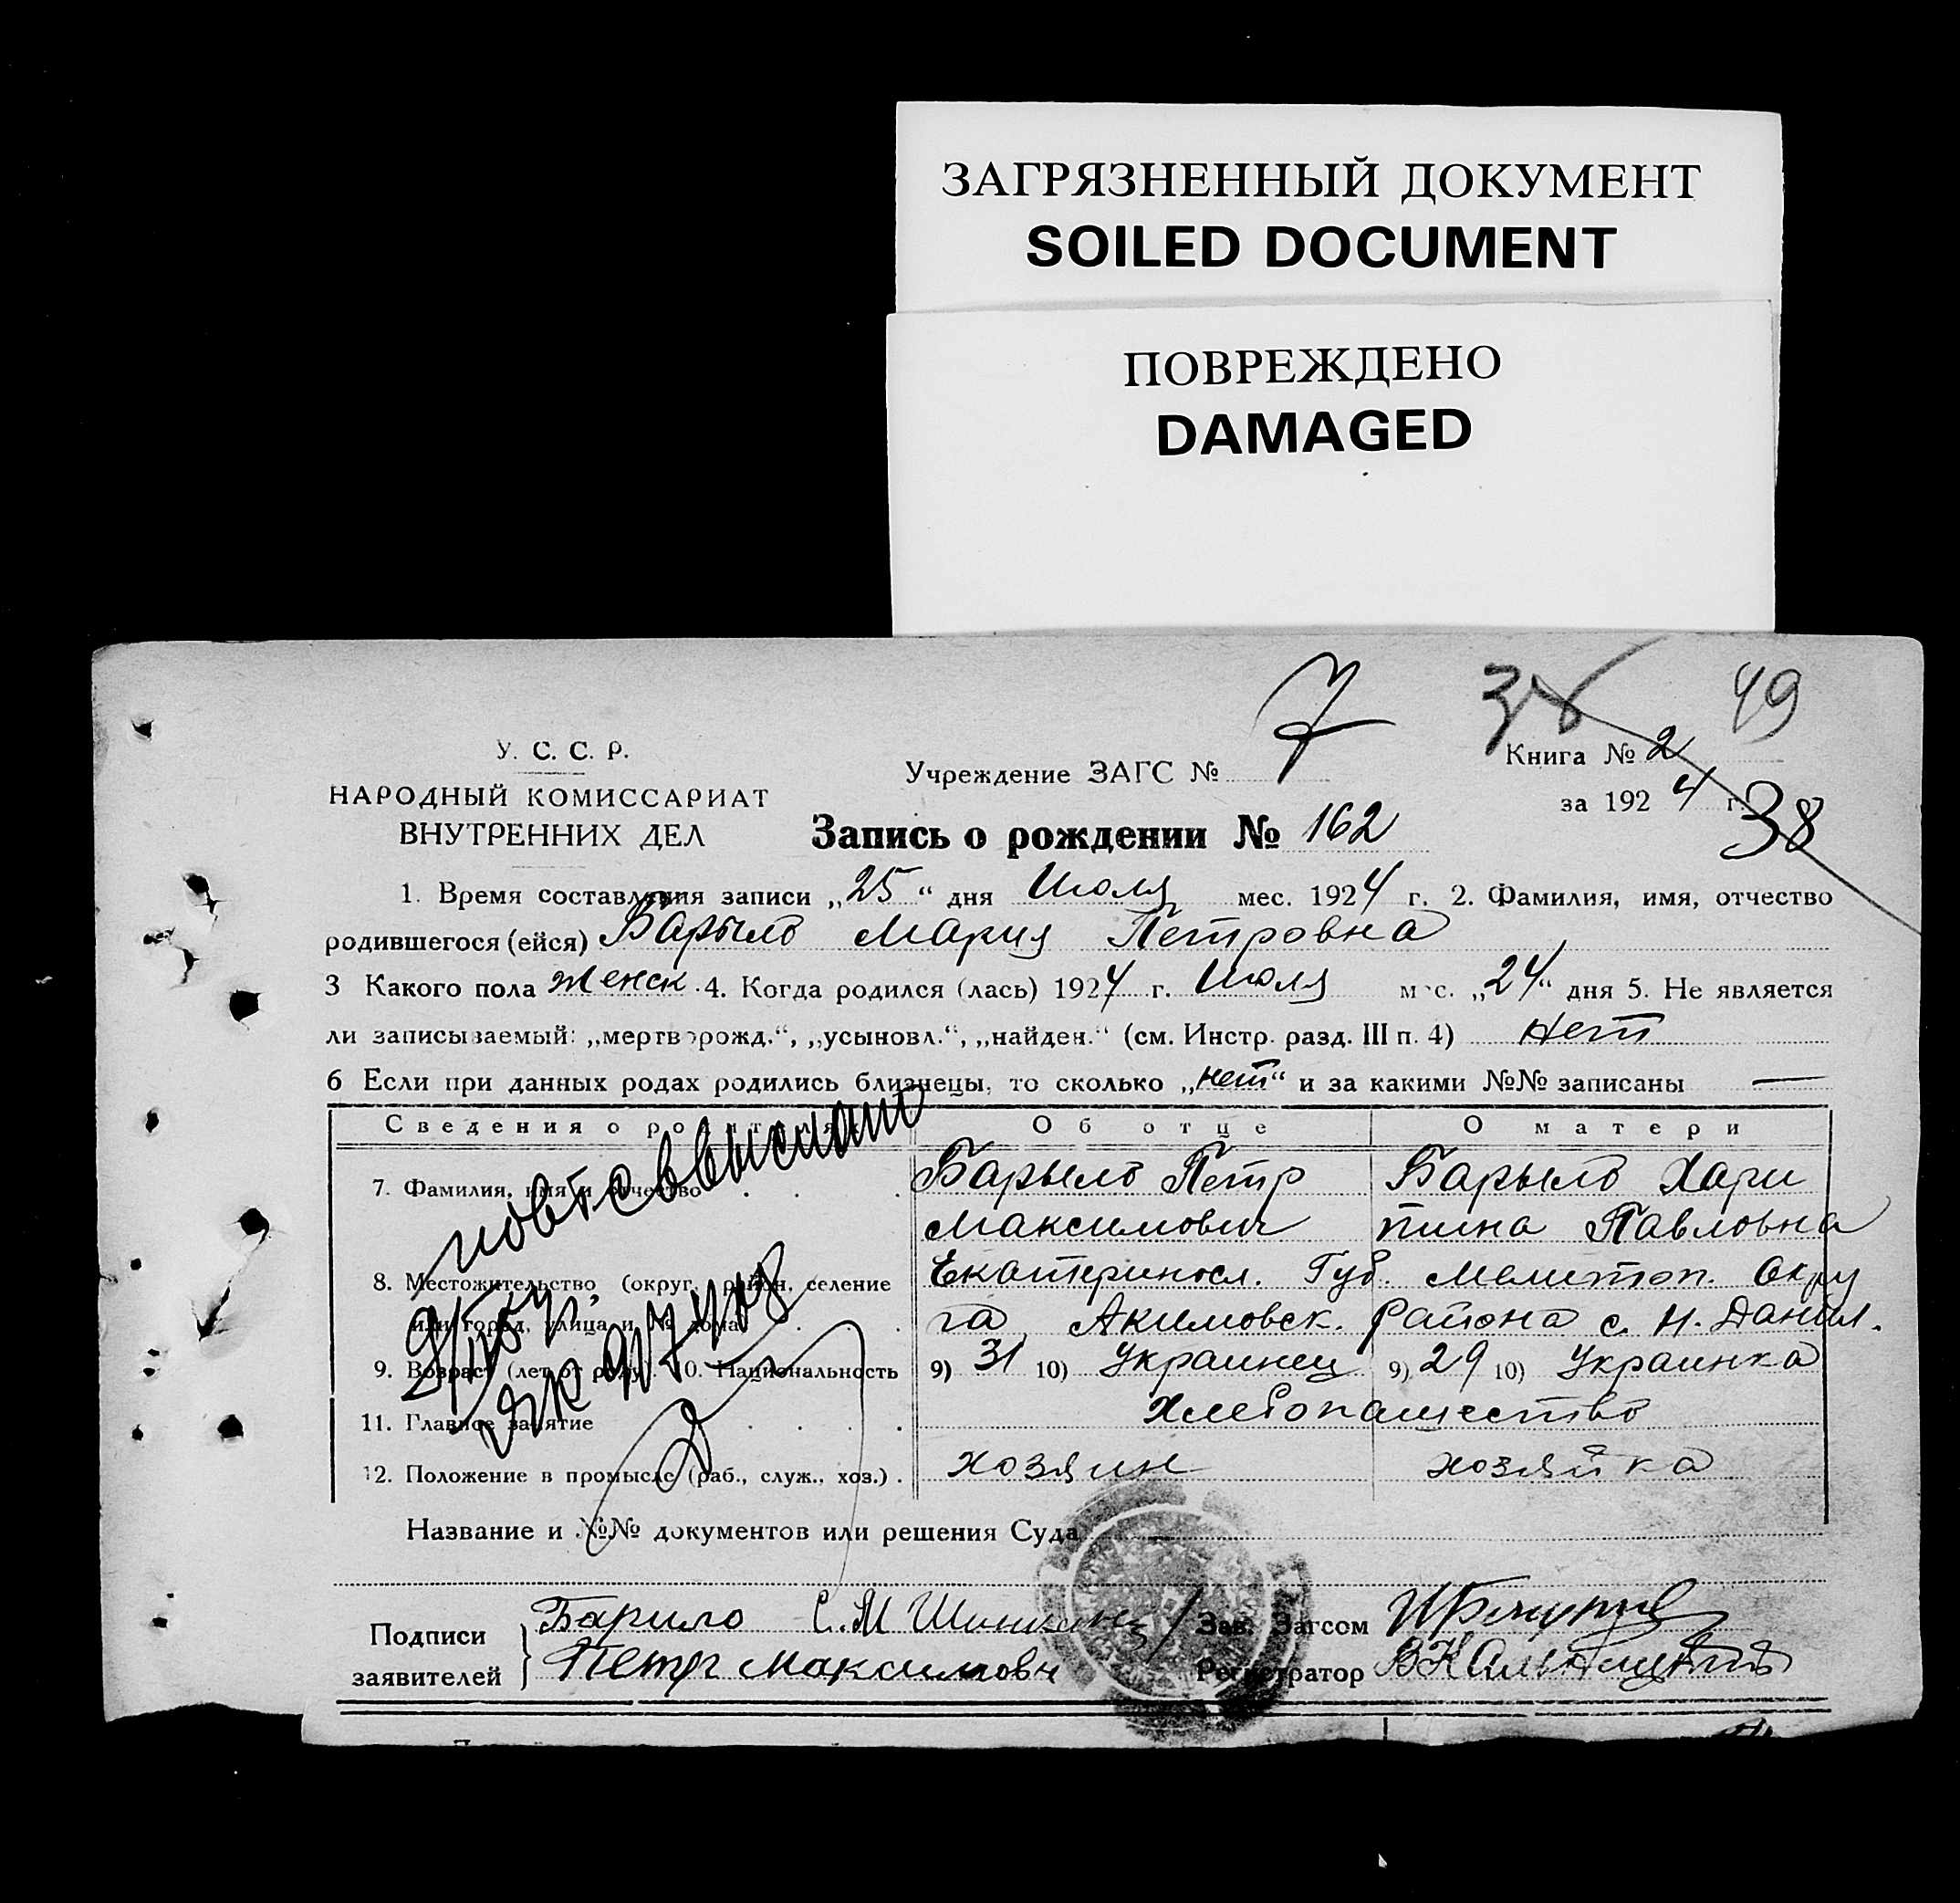 ЗАГРЯЗНЕННЫЙ ДОКУМЕНТ
SOILED DOCUMENT
ПОВРЕЖДЕНО
DAMAGED
49
У. С. С. Р.
НАРОДНЫЙ КОМИССАРИАТ
ВНУТРЕННИХ ДЕЛ
Учреждение ЗАГС № 7
Книга № 2
за 1924 г.
38
Запись о рождении № 162
1. Время составления записи „25“ дня Июля мес. 1924 г. 2. Фамилия, имя, отчество
родившегося (ейся) Барыло Мария Петровна
3 Какого пола женск. 4. Когда родился (лась) 1924 г. Июля мес. „24“ дня 5. Не является
ли записываемый: „мертворожд.“, „усыновл.“, „найден.“ (см. Инстр. разд. III п. 4) нет
6 Если при данных родах родились близнецы, то сколько „нет“ и за какими №№ записаны —
Сведения о родителях Об отце О матери
7. Фамилия, имя и отчество Барыло Петр Барыло Хари
Максимович тина Павловна
8. Местожительство, (округ, район, селение Екатериносл. Губ. Мелитоп. Окру
или город, улица и № дома) га, Акимовск. района с. Н. Данил.
9. Возраст (лет от роду). 10. Национальность 9) 31 10) Украинец 9) 29 10) Украинка
11. Главное занятие Хлебопашество
12. Положение в промысле (раб., служ., хоз.) хозяин хозяйка
Название и №№ документов или решения Суда
Подписи заявителей Барило С. М
Петр Максимович
Зав. Загсом
Регистратор